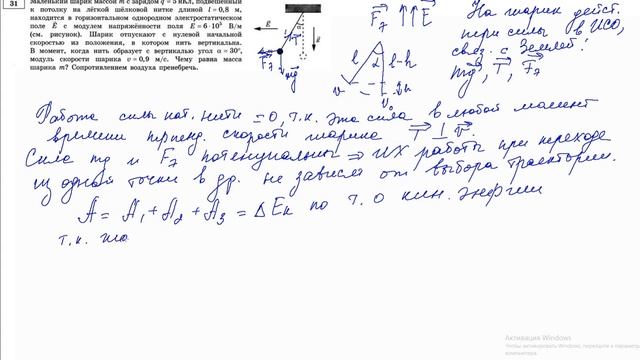 31
Маленький шарик массой m с зарядом q = 5 нКл, подвешенный
к потолку на лёгкой шёлковой нитке длиной l = 0,8 м,
находится в горизонтальном однородном электростатическом
поле E с модулем напряжённости поля E = 6·10⁵ В/м
(см. рисунок). Шарик отпускают с нулевой начальной
скоростью из положения, в котором нить вертикальна.
В момент, когда нить образует с вертикалью угол α = 30°,
модуль скорости шарика v = 0,9 м/с. Чему равна масса
шарика m? Сопротивлением воздуха пренебречь.
E
T
E
F₇
mg
F₇ ↑↑ E
l
α
l-h
h
v
v₀
На шарик дейст.
три силы в ИСО,
связ. с Землей:
mg, T, F₇
Работа силы нат. нити = 0, т.к. эта сила в любой момент
времени перпенд. скорости шарика T ⊥ v.
Сила mg и F₇ потенциальны ⇒ их работы при переходе
из одной точки в др. не зависят от выбора траектории.
A = A₁ + A₂ + A₃ = ΔEк по т. о кин. энергии
т.к.
Активация Windows
Чтобы активировать Windows, перейдите к параметрам
компьютера.